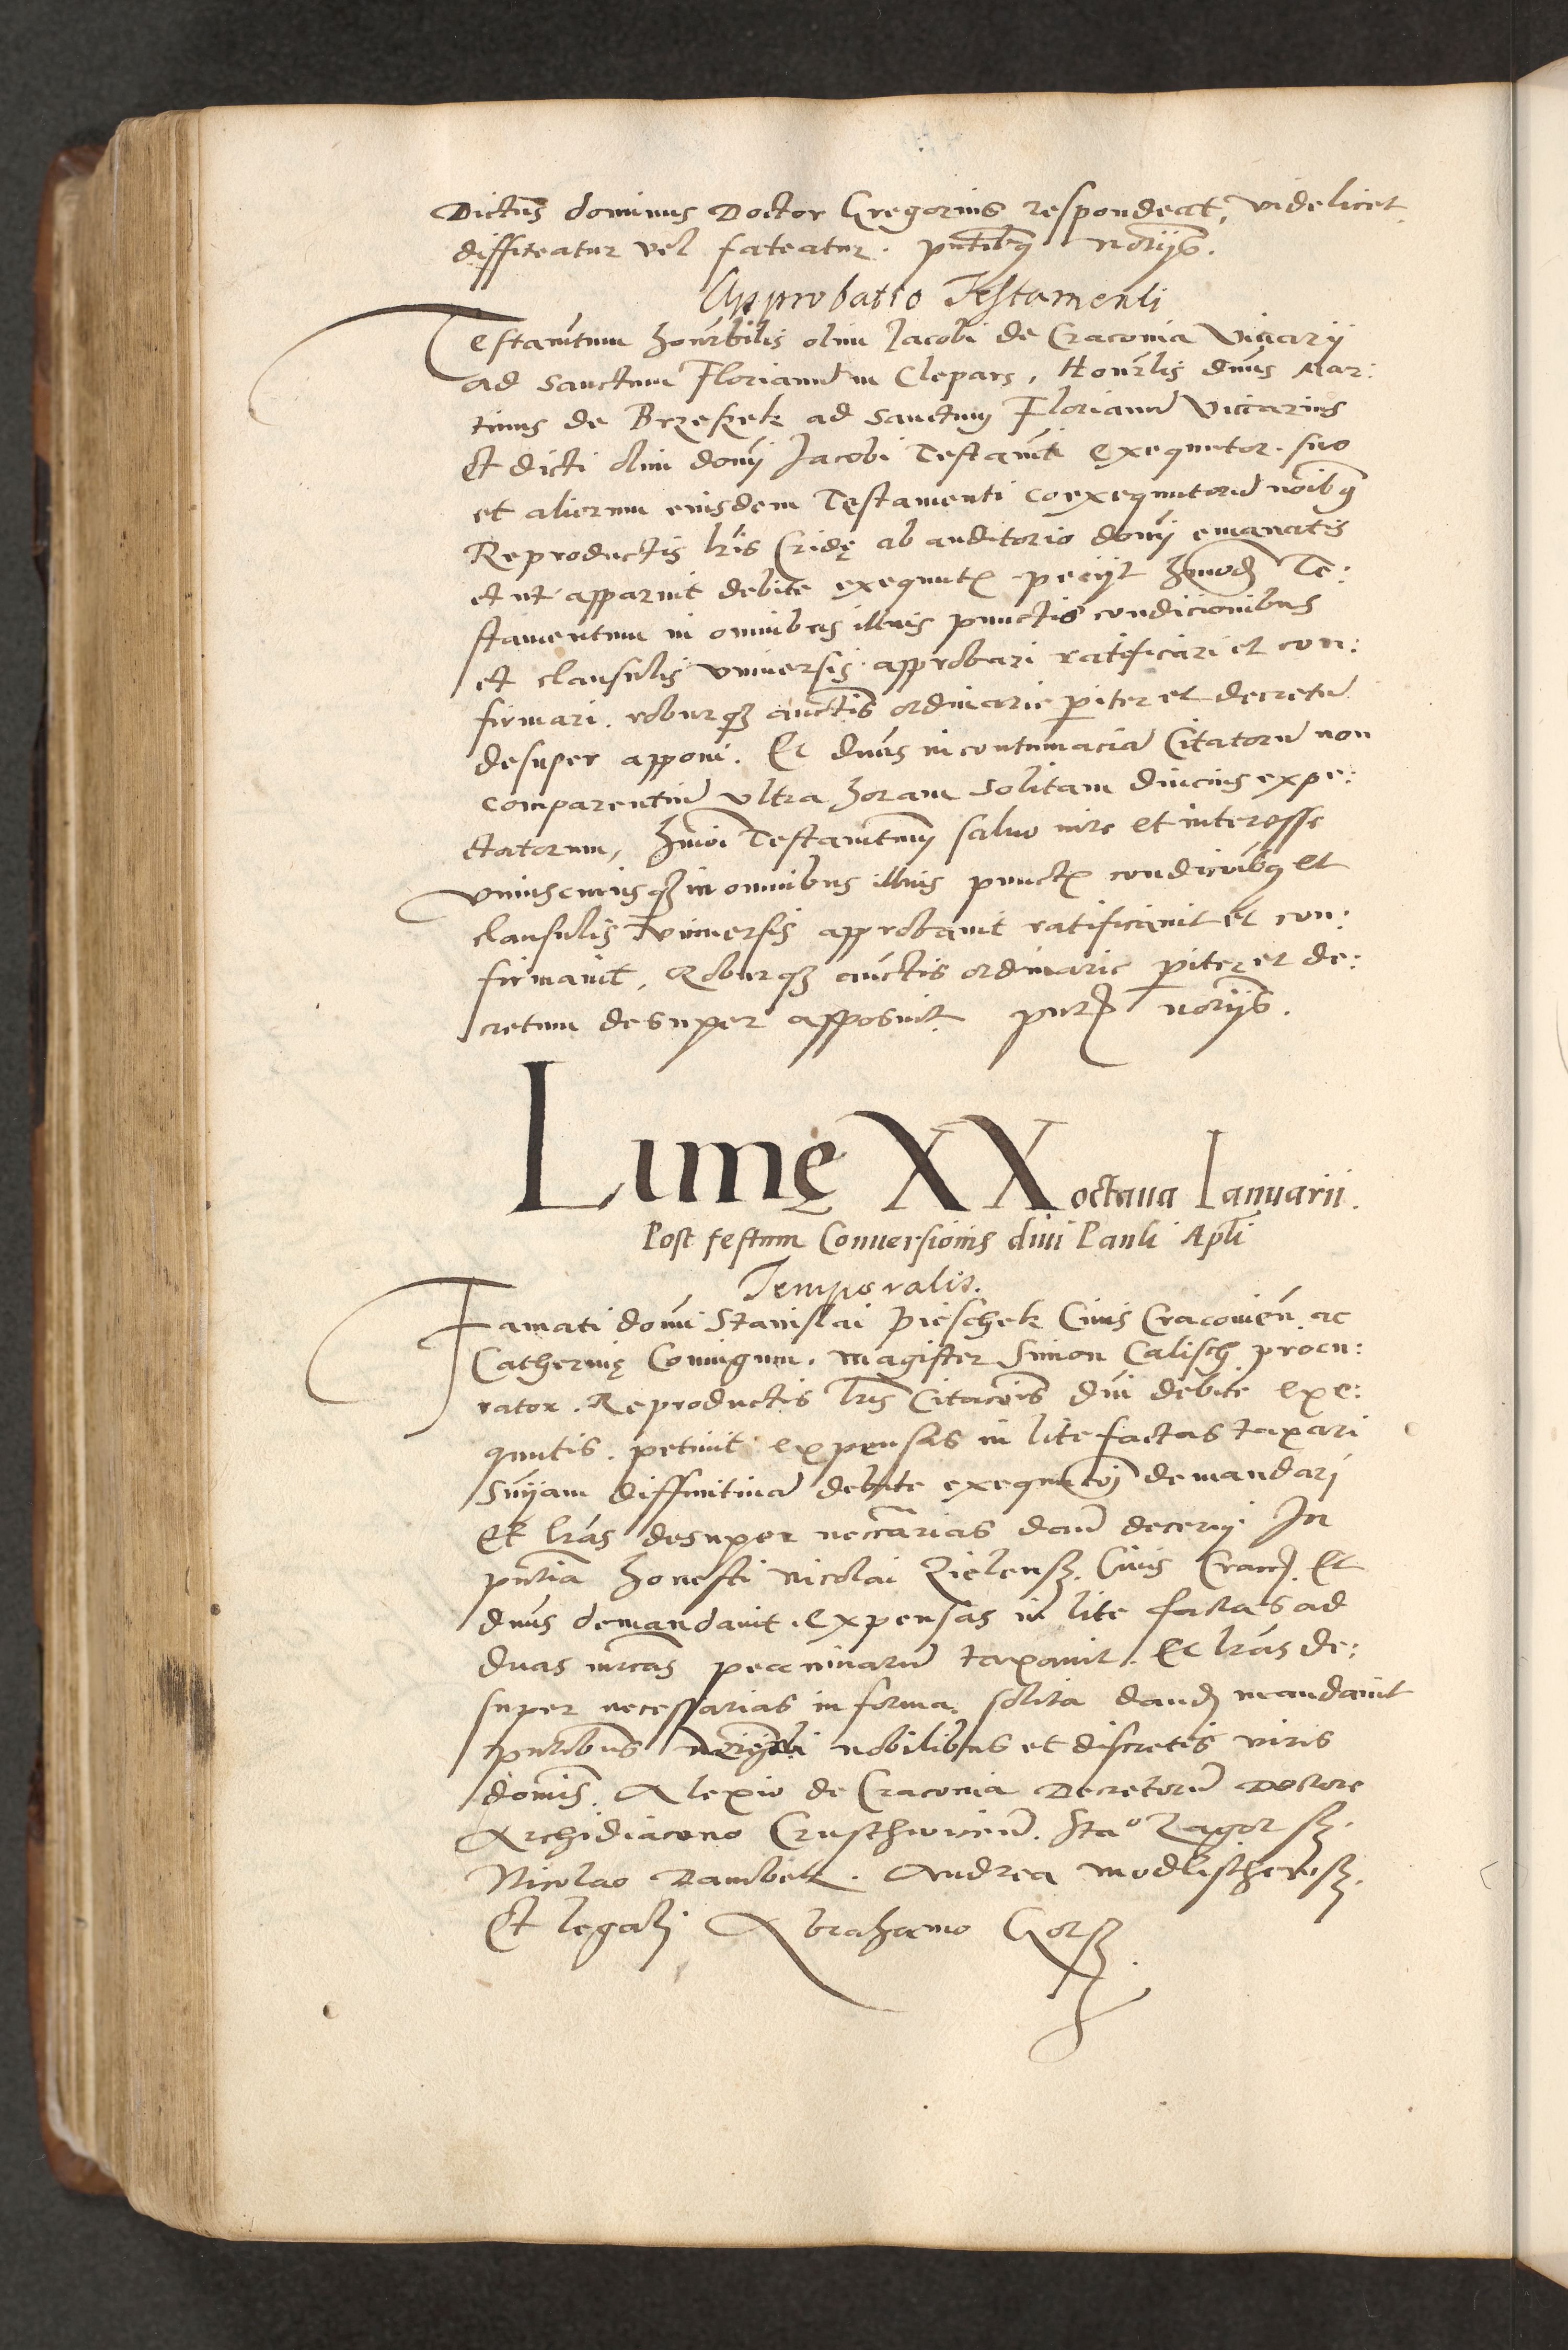 Dictus dominus Doctor Gregorius respondeat, videlicet
diffiteatur vel fateatur. pntibq notijs.
Approbatio Testamenti
Testamtum honrbilis olim Jacobi de Cracovia Vicarij
ad Sanctum Florianum in Clepars, Honrlis dnus Mar:
tinus de Brzeszek ad Sanctum Florianu Viccarius
Et dicti olim domj Jacobi Testamti exequutor. suo
et aliorum eiusdem Testamenti coexequutoru noibq
Reproductis lris Cridę ab auditorio domj emanatis
et ut apparuit debite exequut petijt hmodj Te:
stamentum in omnibus illius punctis condicionibus
et clausulis vniuersis approbari ratificari et con:
firmari. roburqz auctis ordinarie piter et decretu
desuper apponi. Et dnus in contumacia Citatoru non
comparentiu vltra horam solitam diucius expe:
ctatorum, hmoi Testamtum saluo iure et interesse
vniuscuiusqz in omnibus illius punct condicoibq et
clausulis vniuersis approbauit ratificauit et con:
firmauit, Roburqz auctis ordinarie piter et de:
cretum desuper apposuit pnt notijs.
Lunę XX octaua Ianuarii.
Post festum Conuersionis diui Pauli Apli
Temporalis.
Famati domi Stanislai Pieschek Ciuis Cracouien ac
Catherinę Coniugum. Magister Simon Calisch procu:
rator. Reproductis lris Citacois dni debite exe:
quutis. petiuit expensas in lite factas taxari
Snyam diffinitiua debite exequutoj demandari
Et lras desuper neccrias dand decerni In
pntia honesti Nicolai Zielensz. Ciuis Cracc. Et
dnus demandauit. expensas in lite factas ad
duas mrcas pecuniaru taxauit. Et lras de:
super necessarias in forma solita dand mandauit
pntibus nobilibus et discretis viris
domis. Alexio de Cracouia Decretoru Doctore
Archidiacono Cruschuicien. Stao Zagorsz.
Nicolao Dambek. Andrea Modlischewsz.
Et legalj Abrahamo Gorsz.